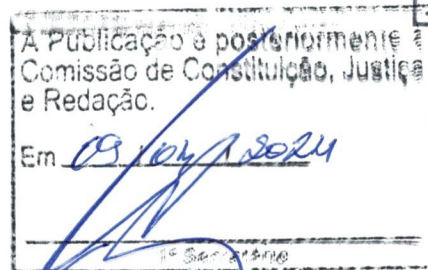 A Publicação e posteriormente à
Comissão de Constituição, Justiça
e Redação.
Em 09 / 04 / 2024
1º Secretário